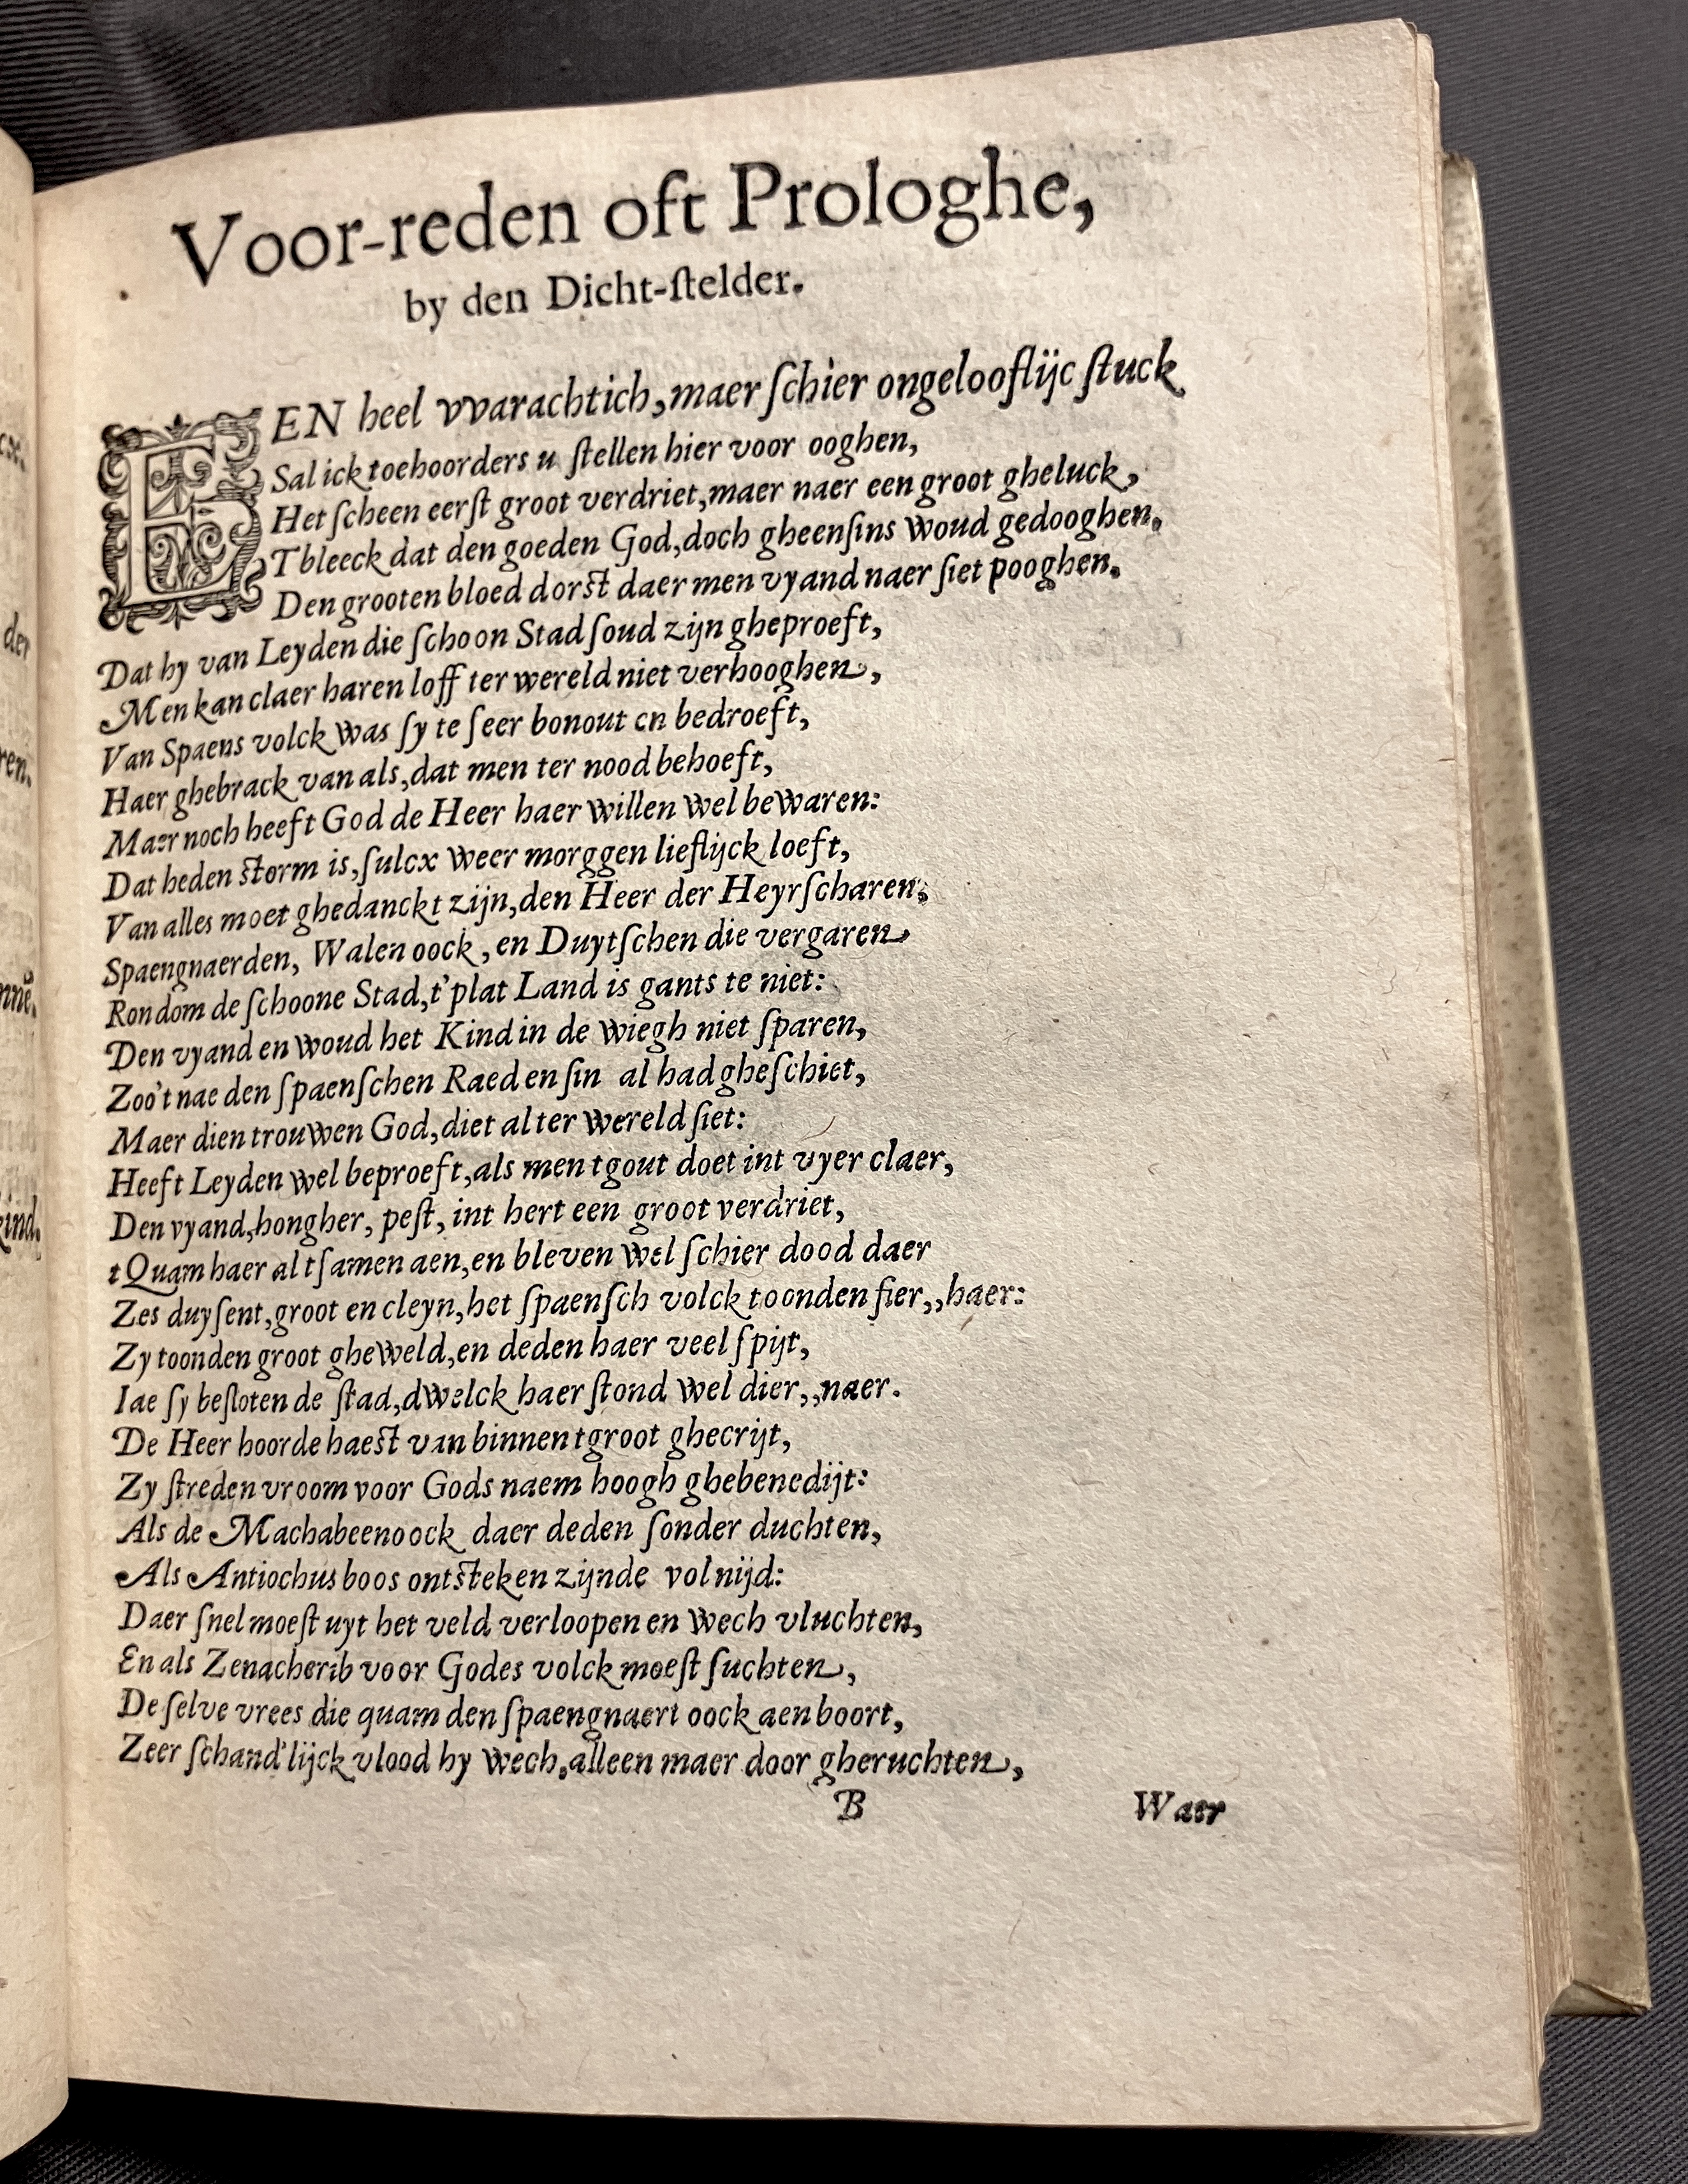 Voor-reden oft Prologhe,
by den Dicht-ſtelder.
EEN heel vvarachtich, maer ſchier ongelooflijc ſtuck
Sal ick toehoorders u ſtellen hier voor ooghen,
Het ſcheen eerſt groot verdriet, maer naer een groot gheluck,
Tbleeck dat den goeden God, doch gheenſins woud gedooghen.
Den grooten bloed dorst daer men vyand naer ſiet pooghen.
Dat hy van Leyden die ſchoon Stad ſoud zijn gheproeft,
Men kan claer haren loff ter wereld niet verhooghen,
Van Spaens volck was ſy te ſeer bonout en bedroeft,
Haer ghebrack van als, dat men ter nood behoeft,
Maer noch heeft God de Heer haer willen wel bewaren:
Dat heden storm is, ſulcx weer morggen lieflijck loeft,
Van alles moet ghedanckt zijn, den Heer der Heyrſcharen,
Spaengnaerden, Walen oock, en Duytſchen die vergaren
Rondom de ſchoone Stad, t'plat Land is gants te niet:
Den vyand en woud het Kind in de wiegh niet ſparen,
Zoo't nae den ſpaenſchen Raed en ſin al had gheſchiet,
Maer dien trouwen God, diet al ter wereld ſiet:
Heeft Leyden wel beproeft, als men tgout doet int vyer claer,
Den vyand, hongher, peſt, int hert een groot verdriet,
tQuam haer al tſamen aen, en bleven wel ſchier dood daer
Zes duyſent, groot en cleyn, het ſpaenſch volck toonden fier,, haer:
Zy toonden groot gheweld, en deden haer veel ſpijt,
Iae ſy beſloten de ſtad, dwelck haer ſtond wel dier,, naer.
De Heer hoorde haest van binnen tgroot ghecrijt,
Zy ſtreden vroom voor Gods naem hoogh ghebenedijt:
Als de Machabeen oock daer deden ſonder duchten,
Als Antiochus boos ontsteken zijnde vol nijd:
Daer ſnel moeſt uyt het veld verloopen en wech vluchten,
En als Zenacherib voor Godes volck moeſt ſuchten,
De ſelve vrees die quam den ſpaengnaert oock aen boort,
Zeer ſchand'lijck vlood hy wech, alleen maer door gheruchten,
B
Waer
der